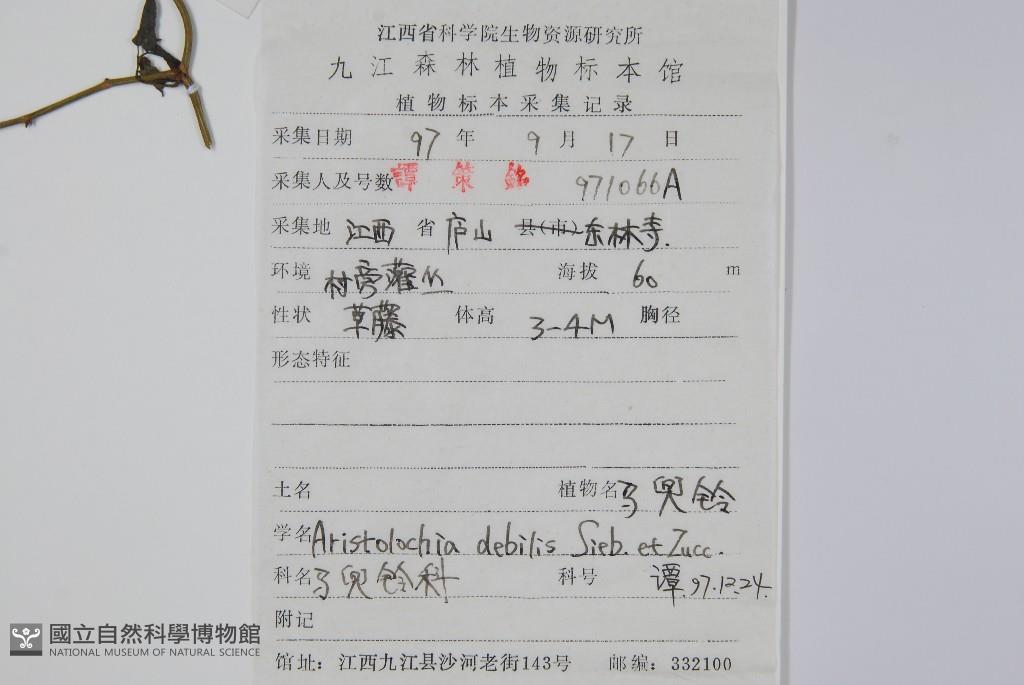 江西省科学院生物资源研究所
九江森林植物标本馆
植物标本采集记录
采集日期 97 年 9 月 17 日
采集人及号数 譚策銘 971066A
采集地 江西 省 庐山 县(市) 东林寺.
环境 村旁灌丛 海拔 60 m
性状 草藤 体高 3-4M 胸径
形态特征
土名 植物名 马兜铃
学名 Aristolochia debilis Sieb. et Zucc.
科名 马兜铃科 科号 谭.97.12.24.
附记
馆址：江西九江县沙河老街143号 邮编：332100
國立自然科學博物館
NATIONAL MUSEUM OF NATURAL SCIENCE